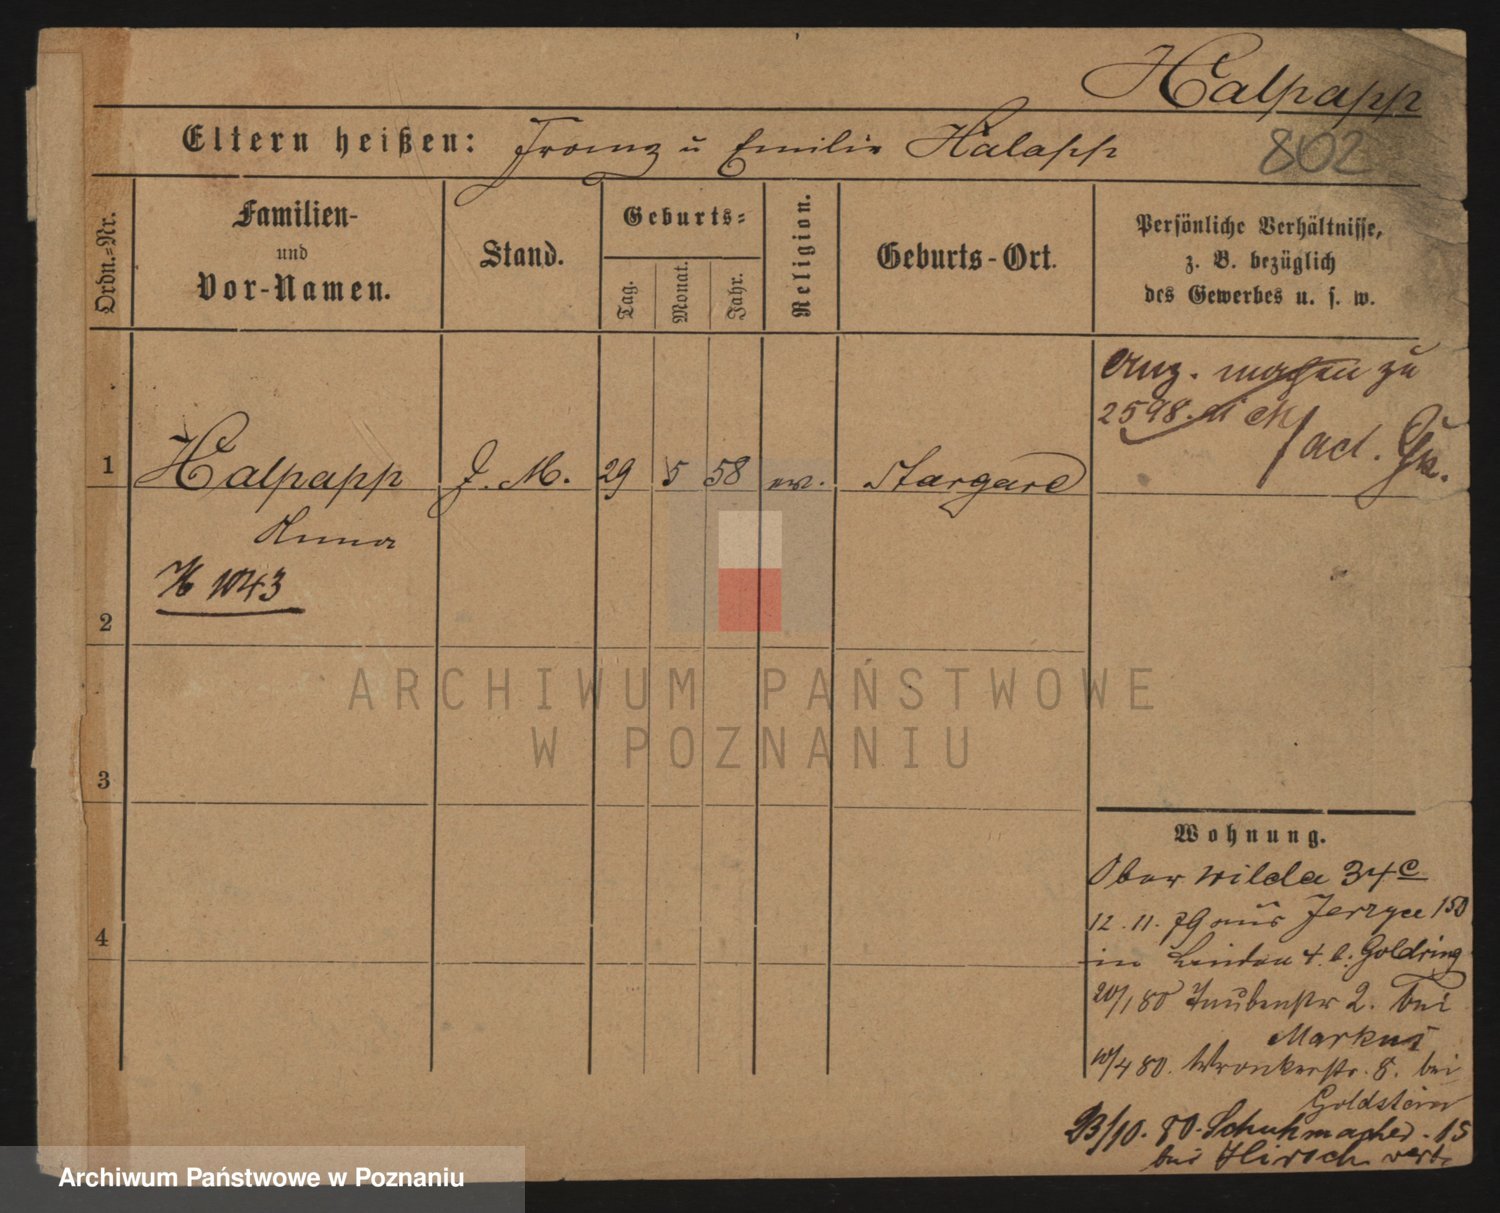 Halpapp
Eltern heißen: Franz u Emilie Halapp
802
Ordn.=Nr.
Familien-
und
Vor-Namen.
Stand.
Geburts=
Tag.
Monat.
Jahr.
Religion.
Geburts-Ort.
Persönliche Verhältnisse,
z. B. bezüglich
des Gewerbes u. s. w.
Anz. machen zu
2598.
ad.
1 Halpapp J. M. 29 5 58 ev. Stargard
Anna
H 1043
2
3
4
Wohnung.
Ober Wilda 34c
12. 11. 79 aus Jerzyce 150
in Linden 4. b. Goldring
20/1 80 Taubenstr 2. bei
Markus
10/4 80. Wronkerstr. 8. bei
Goldstein
23/10. 80. Schuhmacher. 15
bei Hirsch verb.
ARCHIWUM PAŃSTWOWE
W POZNANIU
Archiwum Państwowe w Poznaniu